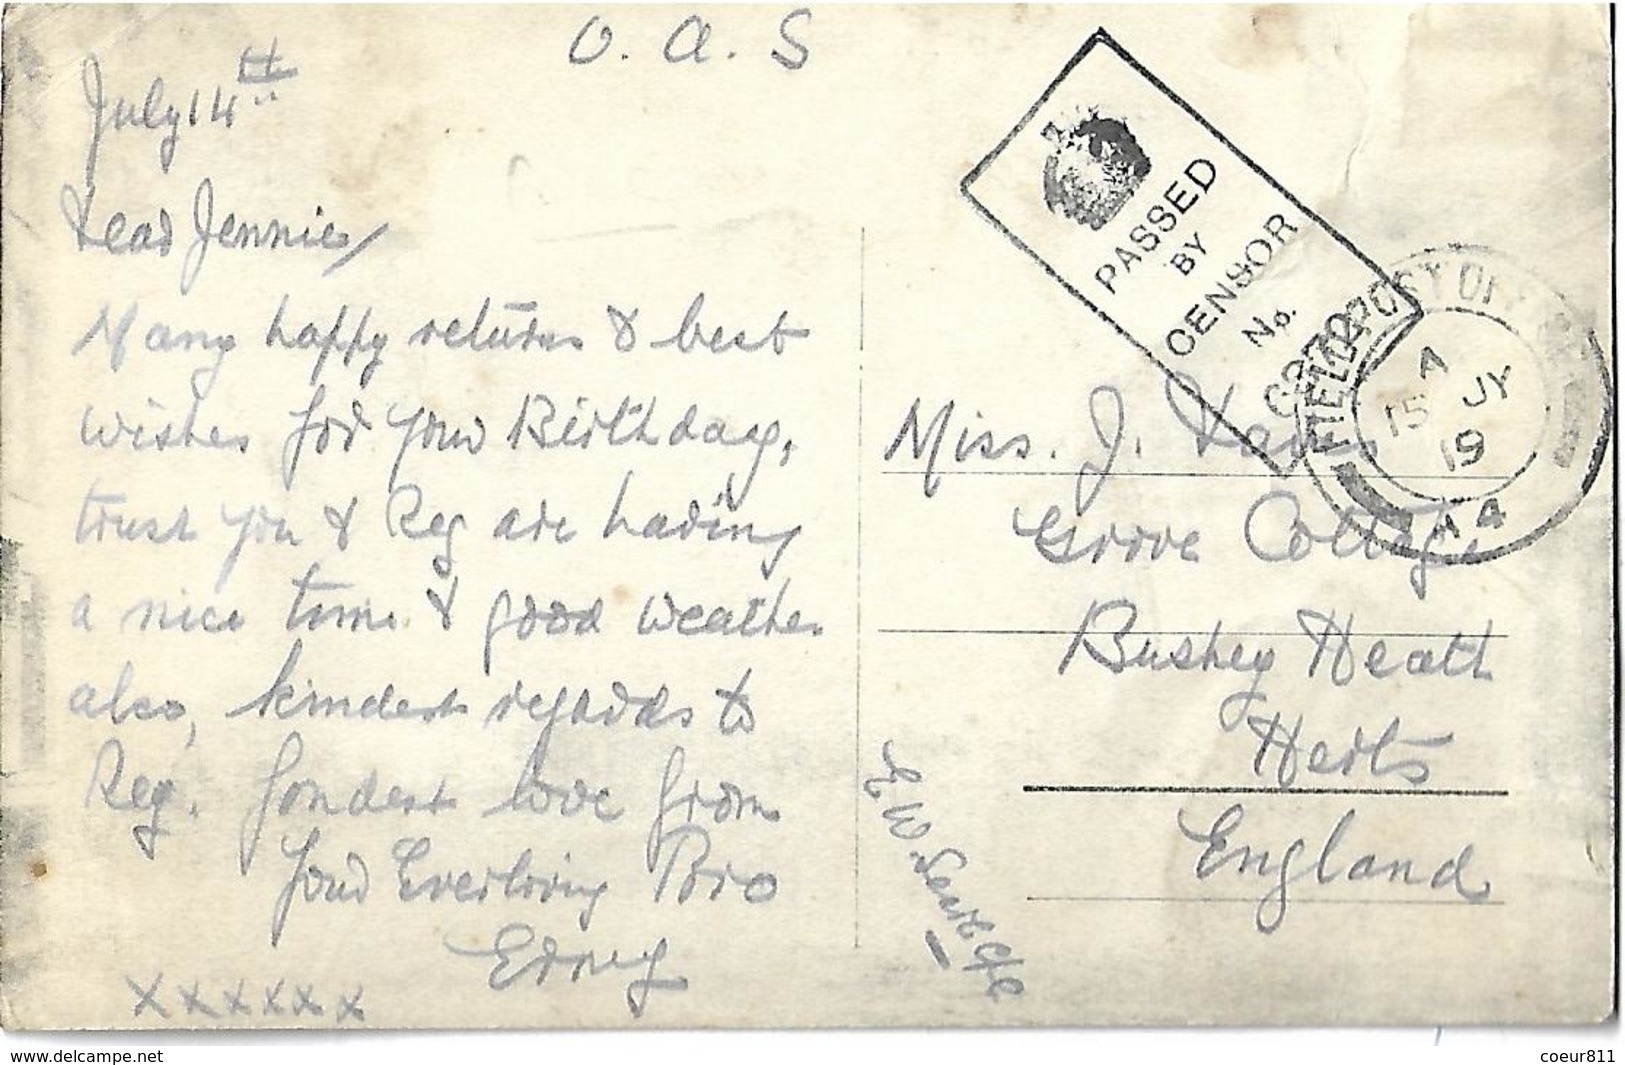 O. A. S
July 14th
Dear Jennie,
Many happy returns & best
wishes for your Birthday,
trust you & Reg are having
a nice time & good weather
also, kindest regards to
Reg. fondest love from
Your Everloving Bro
xxxxxx
PASSED
BY
CENSOR
No.
FIELD POST OFFICE
A
15 JY
19
Miss. J.
Grove Cottage
Bushey Heath
Herts
England
E W
www.delcampe.net
coeur811